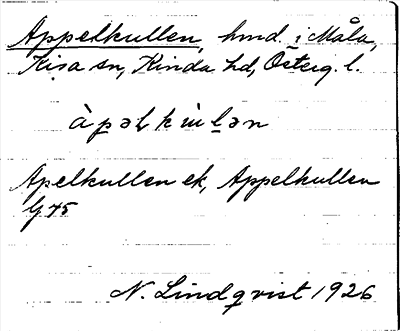 Appelkullen, hmd. i Måla,
Kisa sn, Kinda hd, Österg. l.
àpəlkùlən
Apelkullen ek, Appelkullen
G 45
N. Lindqvist 1926